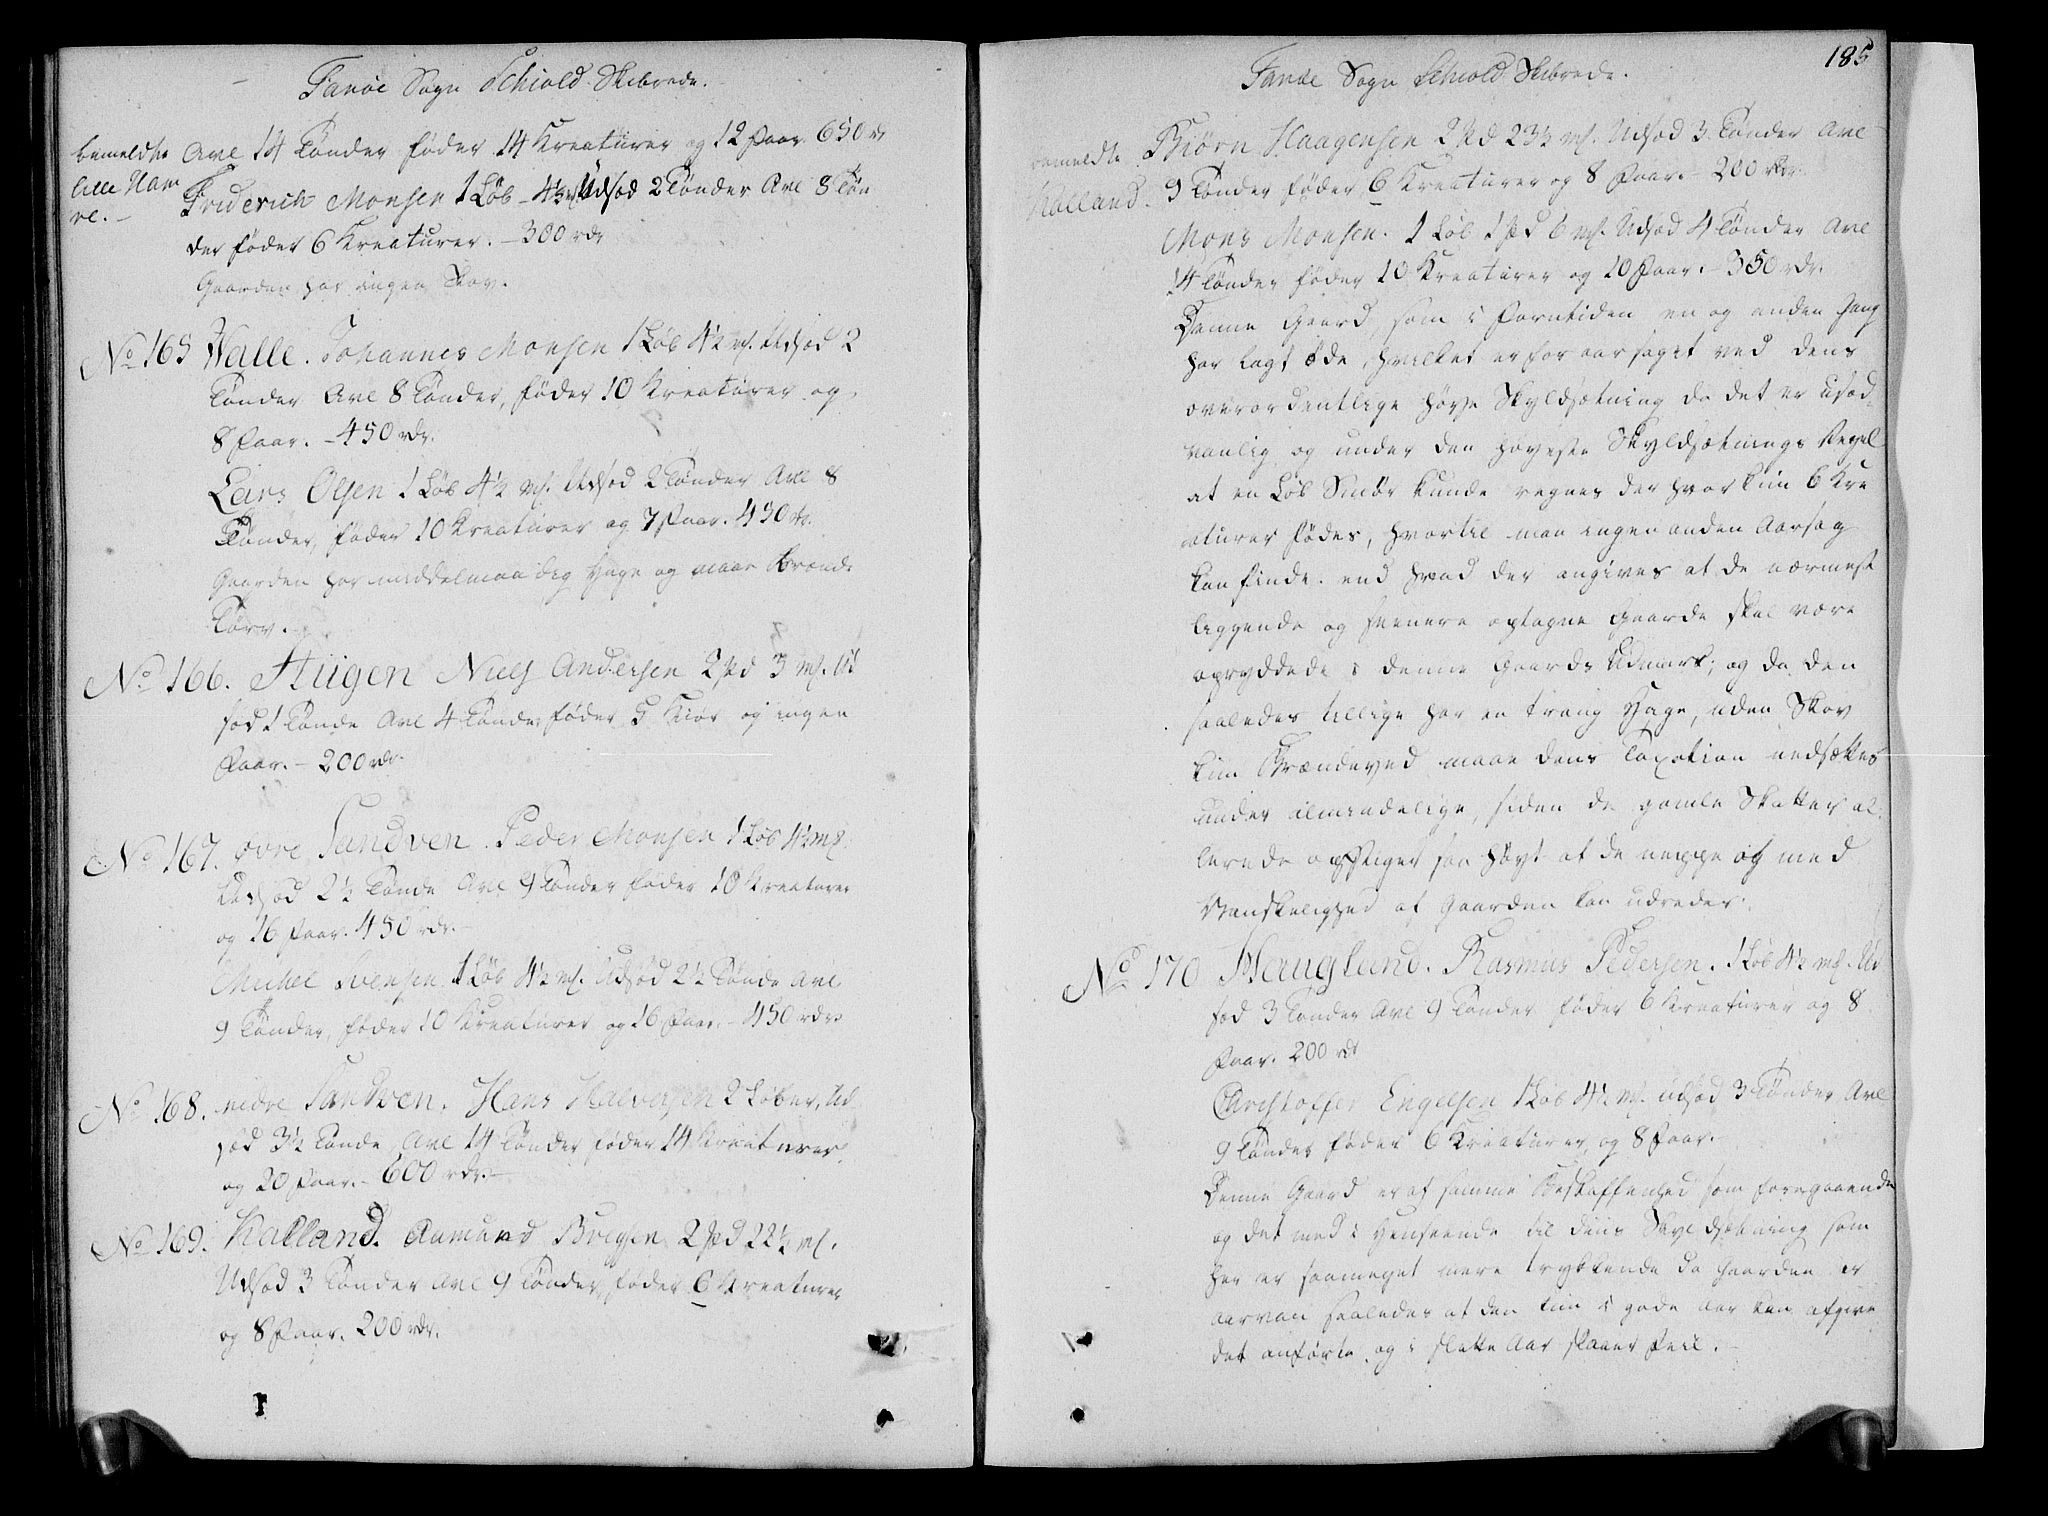 Fanøe Sogn Schiold Skibrede.
bemeldte
lille Ham
re.
Avl 14 Tønder føder 14 Kreaturer og 12 Faar 650 rdr
Friderich Monsen 1 Løb 4½ mk. Udsæd 2 Tønder Avl 8 Tøn
der føder 6 Kreaturer. – 300 rdr
Gaarden har ingen Skov.
No 165 Walle. Johannes Monsen 1 Løb 4½ mk. Udsæd 2
Tønder Avl 8 Tønder, føder 10 Kreaturer og
8 Faar. – 450 rdr.
Lars Olsen 1 Løb 4½ mk. Udsæd 2 Tønder Avl 8
Tønder, føder 10 Kreaturer og 7 Faar. 450 rdr.
Gaarden har middelmaadig Hage og maae brænde
Tørv.
No 166. Hügen Niels Andersen 2 pd 3 mk. Ud
sæd 1 Tønde Avl 4 Tønder føder 5 Kiør og ingen
Faar. – 200 rdr.
No 167. øvre Sandven. Peder Monsen 1 Løb 4½ mk
Udsæd 2½ Tønde Avl 9 Tønder føder 10 Kreaturer
og 16 Faar. 450 rdr. –
Michel Svensen 1 Løb 4½ mk. Udsæd 2½ Tønde Avl
9 Tønder, føder 10 Kreaturer og 16 Faar. – 450 rdr
No 168. nedre Sandven. Hans Halversen 2 Løber, Ud
sæd 3½ Tønde Avl 14 Tønder føder 14 Kreaturer
og 20 Faar. – 600 rdr. –
No 169. Kalland. Aamund 2 pd 22½ mk.
Udsæd 3 Tønder Avl 9 Tønder, føder 6 Kreaturer
og 8 Faar. 200 rdr.
185
Fanøe Sogn Schiold Skibrede.
bemeldte
Kalland.
Biørn Haagensen 2 pd 23½ mk. Udsæd 3 Tønder Avl
9 Tønder føder 6 Kreaturer og 8 Faar. – 200 rdr.
Mons Monsen. 1 Løb 1 pd 6 mk. Udsæd 4 Tønder Avl
14 Tønder føder 10 Kreaturer og 10 Faar. – 350 rdr.
Denne Gaard, som i Forntiden en og anden Gang
har lagt øde, hvilket er foraarsaget ved dens
overordentlige høye Skyldsætning da det er usæd
vanlig og under den høyeste Skyldsætnings Regel
at en Løb Smør kunde regnes der hvor kun 6 Kre
aturer fødes, hvortil man ingen anden Aarsag
kan finde. end hvad der angives at de nærmest
liggende og seenere optagne Gaarde skal være
opryddede i denne Gaards Udmark; og da den
saaledes tillige har en trang Hage, uden Skov
kun Brændeved maae dens Taxation nedsættes
under almindelige, siden de gamle Skatter al
lerede opstiget saa høyt at de neppe og med
Vanskelighed af Gaarden kan udredes.
No 170 Haugland. Rasmus Pedersen. 1 Løb 4½ mk. Ud
sæd 3 Tønder Avl 9 Tønder føder 6 Kreaturer og 8
Faar. 200 rdr
Christoffer Engelsen 1 Løb 4½ mk. udsæd 3 Tønder Avl
9 Tønder føder 6 Kreaturer, og 8 Faar.
Denne Gaard er af samme Beskaffenhed som foregaaende
og det med i Henseende til diens Skyldsætning som
her er saameget mere trykkende da Gaarden er
aarvan saaledes at den kun i gode Aar kan afgive
det anførte, og i slette Aar slaaer Feil. –